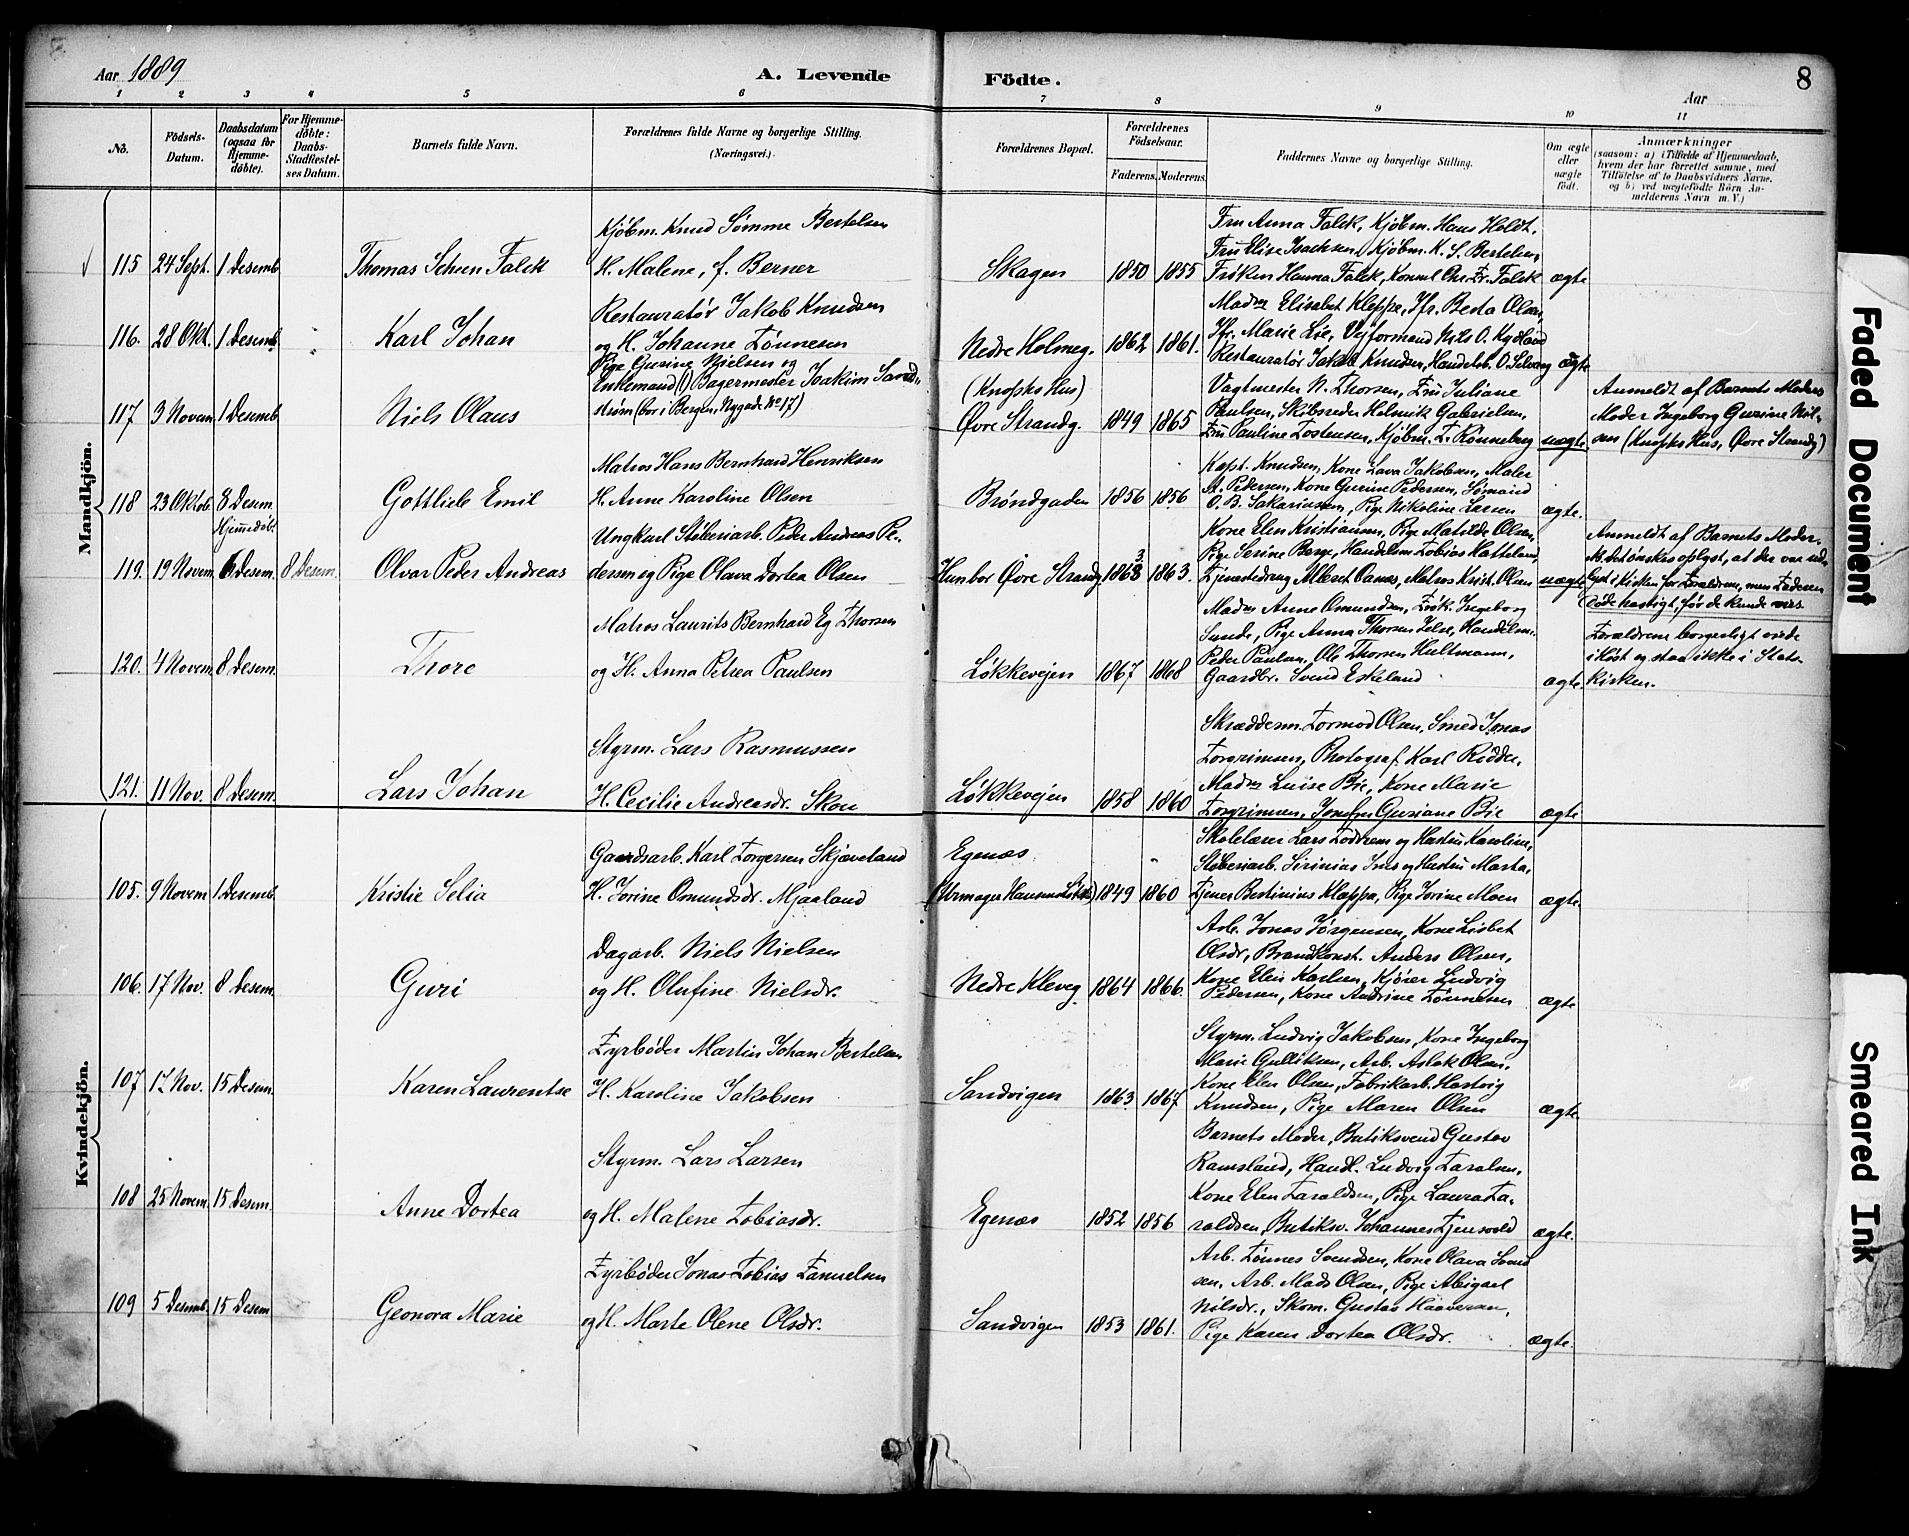 Aar 1889
A. Levende
Födte.
Aar
8
1 2 3 4 5 6 7 8 9 10 11
No.
Födsels-Datum.
Daabsdatum (ogsaa for Hjemme-döbte).
For Hjemme-döbte: Daabs-Stadfæstel-ses Datum.
Barnets fulde Navn.
Forældrenes fulde Navne og borgerlige Stilling.
(Næringsvei.)
Forældrenes Bopæl.
Forældrenes Födselsaar.
Faderens. Moderens.
Faddernes Navne og borgerlige Stilling.
Om ægte eller uægte födt.
Anmærkninger
(saasom: a) i Tilfælde af Hjemmedaab,
hvem der har forrettet samme, med
Tilföielse af to Daabsvidners Navne.
og b) ved uægtefödte Börn An-
melderens Navn m. V.)
Mandkjön.
115 24 Sept. 1 Desemb Thomas Scheen Falck
Kjöbm. Knud Sømme Bertelsen
H. Malene, f. Berner
Skagen 1850 1855
Fru Anna Falck, Kjöbm. Hans Holdt,
Fru Elise Isachsen, Kjöbm. K. S. Bertelsen,
Frøken Hanna Falck, Konsul Chr. Fr. Falck
ægte
116. 28 Okt. 1 Desemb " Karl Johan
Restauratör Jakob Knudsen
og H. Johanne Tönnesen
Nedre Holmeg. 1862 1861.
Madm Elisabet Kleppe, Jfr. Berta Olsen,
Jfr. Marie Lie, Vejformand Nils O. Nyland
Restauratør Jakob Knudsen, Handelsb. O.
ægte
117 3 Novem 1 Desemb Niels Olaus
Pige Gurine Nielsen og
Enkemand(!) Bagermester Joakim Sand-
strøm (bor i Bergen, Nygade No 17)
(Knophs Hus)
Øvre Strandg. 1849 1865
Vagtmester N. Thorsen, Fru Juliane
Paulsen, Skibsreder Helmik Gabrielsen,
Fru Pauline Tostensen, Kjöbm. T. Rönneberg
uægte
Anmeldt af Barnets Moders
Moder Ingeborg Gurine Niel-
sen (Knophs Hus, Øvre Strandg)
118 23 Oktob 8 Desem. Gottlieb Emil
Matros Hans Bernhard Henriksen
H. Anne Karoline Olsen
Bröndgaden 1856 1856
Kapt. Knudsen, Kone Lava Jakobsen, Maler
A. Pedersen, Kone Gurine Pedersen, Sömand
O. B. Sakariassen, Pige Nikoline Larsen
ægte.
Hjemmedöb.
119. 19 Novem 6 Desem. 8 Desem. Olvar Peder Andreas
Ungkarl Støberiarb. Peder Andreas Pe-
dersen og Pige Olava Dortea Olsen
Hunbor Øvre Strandg 1863 1863.
Kone Elen Kristiansen, Pige Matilde Olsen,
Pige Serine Berge, Handelsm Tobias Hatteland,
Tjenestedreng Albret Oanes, Matros Krist. Olsen
uægte
Anmeldt af Barnets Moder.
NB. Det ønskes oplyst, at der var ud-
lyst i Kirken for Forældrene, men Faderen
døde hastigt, før de kunde vies.
120. 4 Novem 8 Desem. Thore
Matros Laurits Bernhard Eg Thorsen
og H. Anna Petrea Paulsen
Løkkevejen 1867 1868
Madm Anne Omundsen, Frøk. Ingeborg
Sunde, Pige Anna Thorsen Jelse, Handelsm.
Peder Paulsen, Ole Thorsen Hultmann,
Gaardbr. Svend Eskeland
ægte.
Forældrene borgerligt viede
i Høst og staa ikke i Stats-
Kirken.
121. 11 Nov. 8 Desem. Lars Johan
Styrm. Lars Rasmussen
H. Cecilie Andreasdr. Skou
Løkkevejen 1858 1860
Skrædderm. Tormod Olsen, Smed Jonas
Torgrimsen, Photograf Karl Rödder,
Madm Luise Bie, Kone Marie
Torgrimsen, Jomfru Gusiane Bie
ægte
Kvindekjön.
105. 9 Novem 1 Desemb. Kristie Selia
Gaardsarb. Karl Torgersen Skjæveland
H. Jorine Osmundsdr. Mjaaland
Egenæs
(Urmager Hansens Løkke) 1849 1860
Skolelærer Lars Todnem og Hustru Karoline,
Støberiarb. Sirinius Ims og Hustru Marta,
Tjener Bertinius Kleppa, Pige Jorine Moen
ægte.
106. 17 Nov. 8 Desem. Guri
Dagarb. Niels Nielsen
og H. Olufine Nielsdr.
Nedre Kleveg. 1864 1866.
Arb. Jonas Jørgensen, Kone Lisbet
Olsdr, Brandkonst. Anders Olsen,
Kone Elen Karlsen, Kjører Ludvig
Pedersen, Kone Andrine Tönnesen
ægte
107 17 Nov. 15 Desem. Karen Laurentse
Fyrbøder Martin Johan Bertelsen
H. Karoline Jakobsen
Sandvigen 1863 1867
Styrm. Ludvig Jakobsen, Kone Ingeborg
Marie Gulliksen, Arb. Aslak Olsen,
Kone Elen Olsen, Fabrikarb. Hartvig
Knudsen, Pige Maren Olsen
ægte.
108 25 Novem. 15 Desem. Anne Dortea
Styrm. Lars Larsen
og H. Malene Tobiasdr.
Egenæs 1852 1856
Barnets Moder, Butiksvend Gustav
Ramsland, Handl. Ludvig Taralsen,
Kone Elen Taraldsen, Pige Laura Ta-
raldsen, Butiksv. Johannes Tjensvold
ægte.
109 5 Desemb. 15 Desem Geonora Marie
Fyrbøder Jonas Tobias Samuelsen
og H. Marte Olene Olsdr.
Sandvigen 1853 1861.
Arb. Tönnes Svendsen, Kone Olava Svend
sen, Arb. Mads Olsen, Pige Abigael
Nilsdr., Skom. Gustav Haaversen,
Pige Karen Dortea Olsdr.
ægte.
Faded Document
Smeared Ink